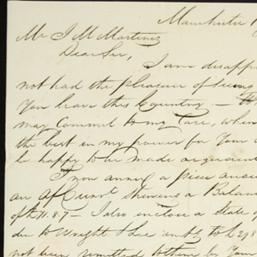 Manchester
Mr J M Martinez
Dear Sir,
I am disapp
not had the pleasure of seeing
You leave this Country —
may commit to my Care, when
the best in my power for Your
be happy to be made acquain
I now annex a price
an a/Current shewing a Balance
of — I also enclose a State of
due to Wright & to £298
not been remitted to them by Your